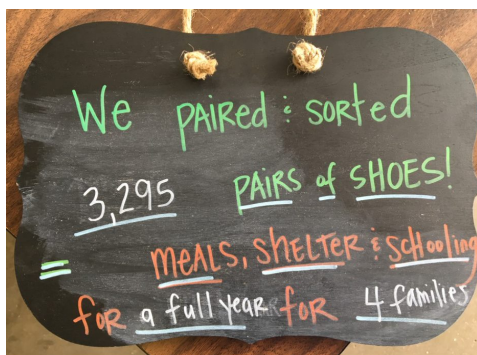 We PAIRed & SORted
3,295 PAIRS of SHOES!
= MEALS, SHELTER & SCHOOLing
foR a full YeaR foR 4 families